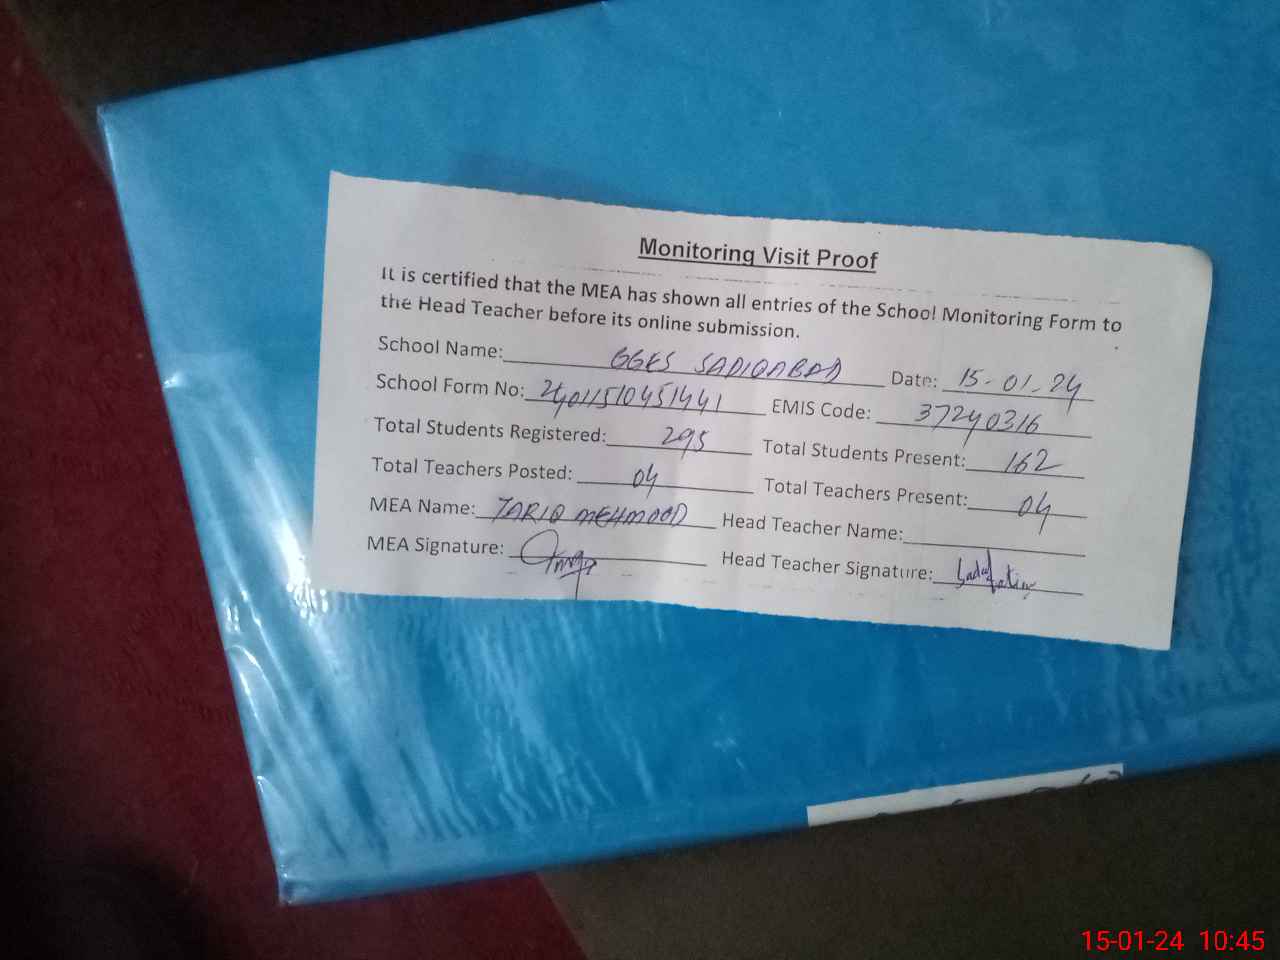 Monitoring Visit Proof
It is certified that the MEA has shown all entries of the School Monitoring Form to
the Head Teacher before its online submission.
School Name: GGES SADIQABAD Date: 15-01-24
School Form No: 24011510451441 EMIS Code: 37240316
Total Students Registered: 295 Total Students Present: 162
Total Teachers Posted: 04 Total Teachers Present: 04
MEA Name: TARIQ MEHMOOD Head Teacher Name:
MEA Signature: Head Teacher Signature:
15-01-24 10:45